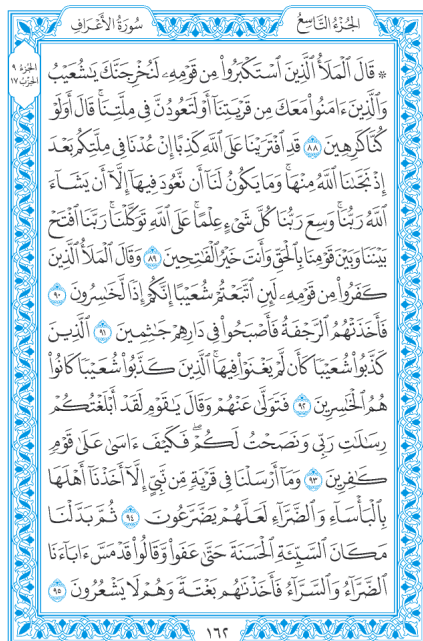 سُورَةُ الأَعْرَافِ
الجُزْءُ التَّاسِعُ
الجزء ٩
الحزب ١٧
۞ قَالَ ٱلْمَلَأُ ٱلَّذِينَ ٱسْتَكْبَرُوا۟ مِن قَوْمِهِۦ لَنُخْرِجَنَّكَ يَٰشُعَيْبُ
وَٱلَّذِينَ ءَامَنُوا۟ مَعَكَ مِن قَرْيَتِنَآ أَوْ لَتَعُودُنَّ فِى مِلَّتِنَا ۚ قَالَ أَوَلَوْ
كُنَّا كَٰرِهِينَ ٨٨ قَدِ ٱفْتَرَيْنَا عَلَى ٱللَّهِ كَذِبًا إِنْ عُدْنَا فِى مِلَّتِكُم بَعْدَ
إِذْ نَجَّىٰنَا ٱللَّهُ مِنْهَا ۚ وَمَا يَكُونُ لَنَآ أَن نَّعُودَ فِيهَآ إِلَّآ أَن يَشَآءَ
ٱللَّهُ رَبُّنَا ۚ وَسِعَ رَبُّنَا كُلَّ شَىْءٍ عِلْمًا ۚ عَلَى ٱللَّهِ تَوَكَّلْنَا ۚ رَبَّنَا ٱفْتَحْ
بَيْنَنَا وَبَيْنَ قَوْمِنَا بِٱلْحَقِّ وَأَنتَ خَيْرُ ٱلْفَٰتِحِينَ ٨٩ وَقَالَ ٱلْمَلَأُ ٱلَّذِينَ
كَفَرُوا۟ مِن قَوْمِهِۦ لَئِنِ ٱتَّبَعْتُمْ شُعَيْبًا إِنَّكُمْ إِذًا لَّخَٰسِرُونَ ٩٠
فَأَخَذَتْهُمُ ٱلرَّجْفَةُ فَأَصْبَحُوا۟ فِى دَارِهِمْ جَٰثِمِينَ ٩١ ٱلَّذِينَ
كَذَّبُوا۟ شُعَيْبًا كَأَن لَّمْ يَغْنَوْا۟ فِيهَا ۚ ٱلَّذِينَ كَذَّبُوا۟ شُعَيْبًا كَانُوا۟
هُمُ ٱلْخَٰسِرِينَ ٩٢ فَتَوَلَّىٰ عَنْهُمْ وَقَالَ يَٰقَوْمِ لَقَدْ أَبْلَغْتُكُمْ
رِسَٰلَٰتِ رَبِّى وَنَصَحْتُ لَكُمْ ۖ فَكَيْفَ ءَاسَىٰ عَلَىٰ قَوْمٍ
كَٰفِرِينَ ٩٣ وَمَآ أَرْسَلْنَا فِى قَرْيَةٍ مِّن نَّبِىٍّ إِلَّآ أَخَذْنَآ أَهْلَهَا
بِٱلْبَأْسَآءِ وَٱلضَّرَّآءِ لَعَلَّهُمْ يَضَّرَّعُونَ ٩٤ ثُمَّ بَدَّلْنَا
مَكَانَ ٱلسَّيِّئَةِ ٱلْحَسَنَةَ حَتَّىٰ عَفَوا۟ وَّقَالُوا۟ قَدْ مَسَّ ءَابَآءَنَا
ٱلضَّرَّآءُ وَٱلسَّرَّآءُ فَأَخَذْنَٰهُم بَغْتَةً وَهُمْ لَا يَشْعُرُونَ ٩٥
١٦٢